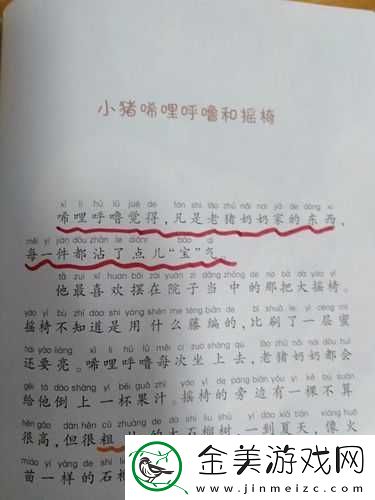 小猪唏哩呼噜和摇椅
xī lǐ hū lū jué de fán shì lǎo zhū nǎi nai jiā de dōng xi
唏哩呼噜觉得，凡是老猪奶奶家的东西，
měi yí jiàn dōu zhān le diǎnr bǎo qì
每一件都沾了点儿“宝”气。
tā zuì xǐ huan bǎi zài yuàn zi dāng zhōng de nà bǎ dà yáo yǐ
他最喜欢摆在院子当中的那把大摇椅。
yáo yǐ bù zhī dào shì yòng shén me téng biān de bǐ shuā le yì céng mì
摇椅不知道是用什么藤编的，比刷了一层蜜
hái yào liàng xī lǐ hū lū měi cì zuò shàng qù lǎo zhū nǎi nai dōu huì
还要亮。唏哩呼噜每次坐上去，老猪奶奶都会
gěi tā dào shàng yì bēi guǒ zhī yáo yǐ de páng biān yǒu yì kē bú suàn
给他倒上一杯果汁。摇椅的旁边有一棵不算
hěn gāo dàn hěn cū zhuàng de dà shí liu shù yí dào xià tiān xiàng huǒ
很高，但很粗 的大石榴树，一到夏天，像火
miáo yí yàng de shí
苗一样的石榴
金美游戏网
www.jinmeizc.com